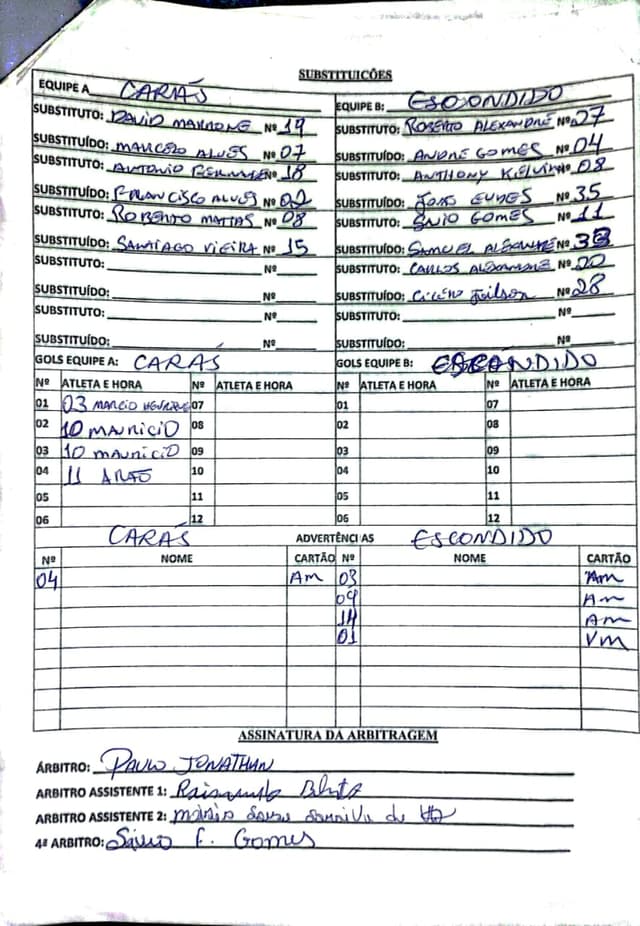 SUBSTITUICÕES
EQUIPE A CARIÁS EQUIPE B: ESCONDIDO
SUBSTITUTO: DAVID Nº 19 SUBSTITUTO: ROBERTO ALEXANDRE Nº 27
SUBSTITUÍDO: MARCELO ALVES Nº 07 SUBSTITUÍDO: ANDRÉ GOMES Nº 04
SUBSTITUTO: ANTONIO Nº 18 SUBSTITUTO: ANTHONY KELVIN Nº 08
SUBSTITUÍDO: FRANCISCO ALVES Nº 02 SUBSTITUÍDO: JOÃO EUDES Nº 35
SUBSTITUTO: ROBERTO MATIAS Nº 08 SUBSTITUTO: GOMES Nº 11
SUBSTITUÍDO: SANTIAGO VIEIRA Nº 15 SUBSTITUÍDO: SAMUEL ALEXANDRE Nº
SUBSTITUTO: Nº SUBSTITUTO: CARLOS ALEXANDRE Nº 20
SUBSTITUÍDO: Nº SUBSTITUÍDO: CÍCERO Nº 28
SUBSTITUTO: Nº SUBSTITUTO: Nº
SUBSTITUÍDO: Nº SUBSTITUÍDO: Nº
GOLS EQUIPE A: CARÁS GOLS EQUIPE B: ESCONDIDO
Nº ATLETA E HORA Nº ATLETA E HORA Nº ATLETA E HORA Nº ATLETA E HORA
01 03 MARCIO HENRIQUE 07 01 07
02 10 MAURICIO 08 02 08
03 10 MAURICIO 09 03 09
04 11 10 04 10
05 11 05 11
06 12 06 12
CARÁS ADVERTÊNCIAS ESCONDIDO
Nº NOME CARTÃO Nº NOME CARTÃO
04 Am 03 Am
09 Am
14 Am
01 Vm
ASSINATURA DA ARBITRAGEM
ÁRBITRO: PAULO JONATHAN
ARBITRO ASSISTENTE 1: Raimundo
ARBITRO ASSISTENTE 2:
4º ARBITRO: Sávio F. Gomes